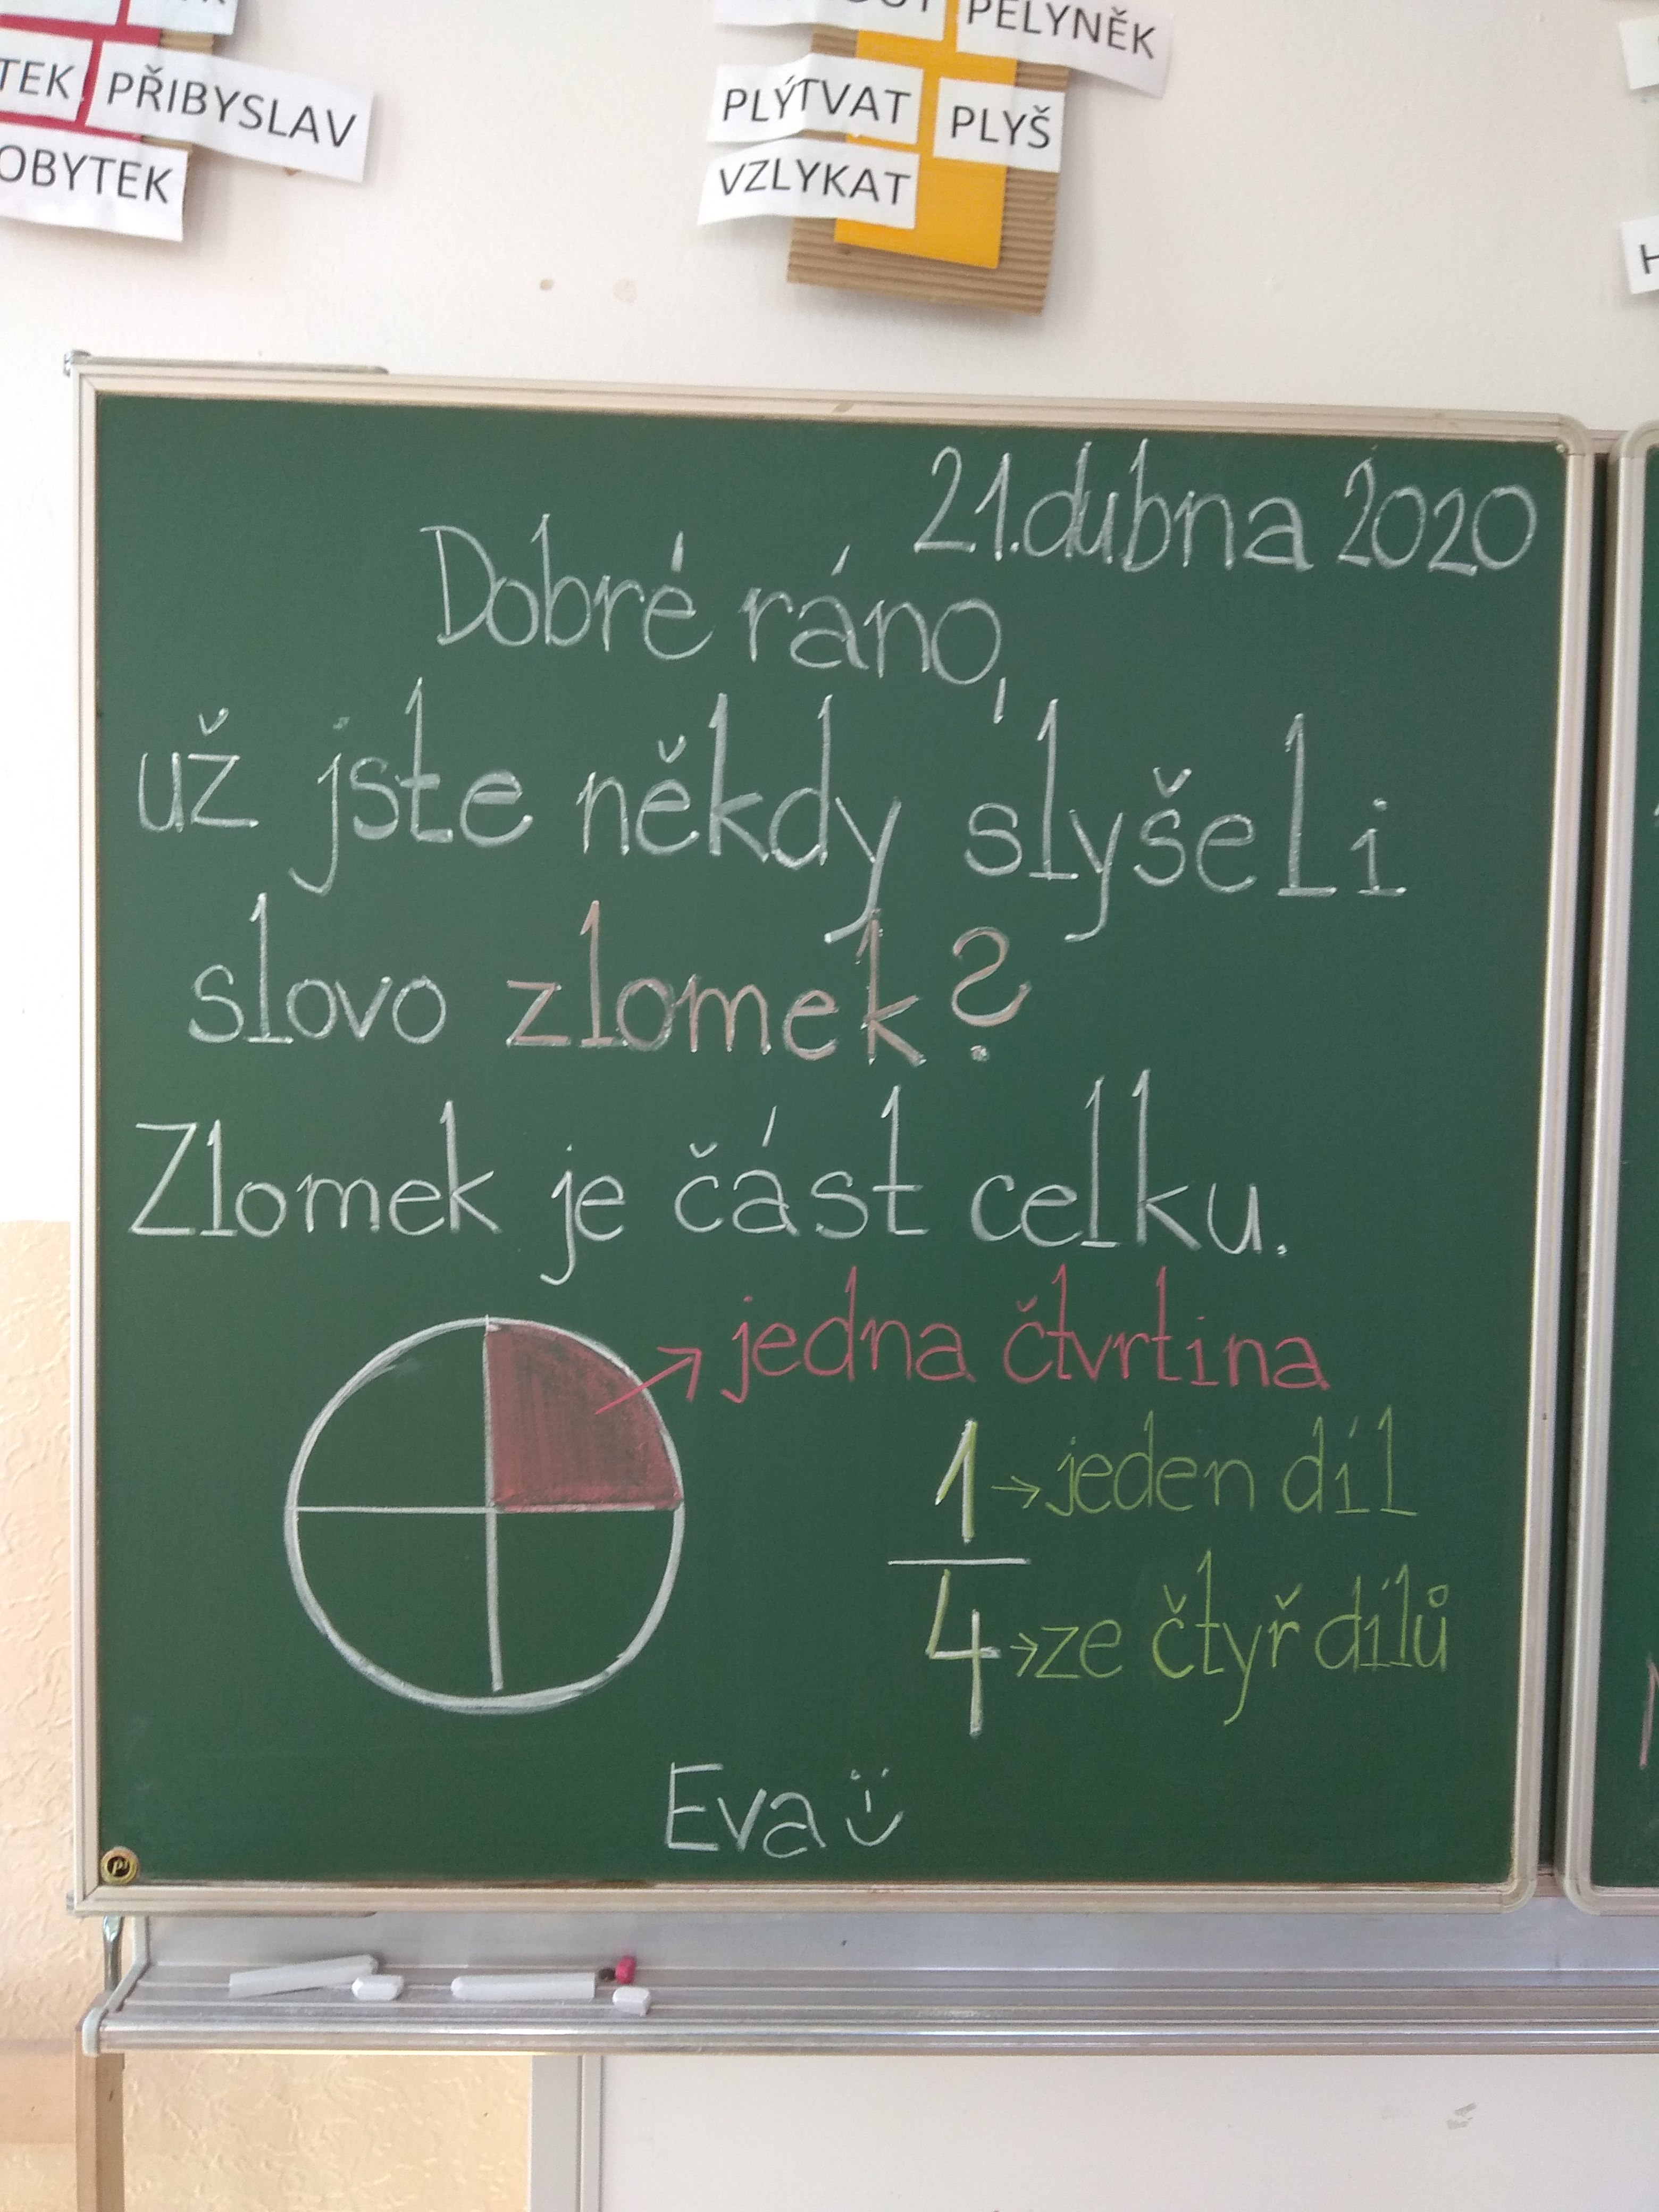 PELYNĚK
PŘIBYSLAV
PLÝTVAT PLYŠ
VZLYKAT
21. dubna 2020
Dobré ráno,
už jste někdy slyšeli
slovo zlomek?
Zlomek je část celku.
jedna čtvrtina
1 → jeden díl
4 → ze čtyř dílů
Eva